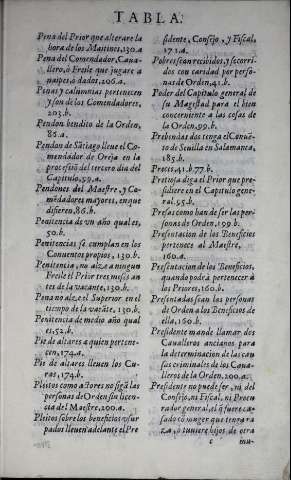 TABLA.
Pena del Prior que alterare la
hora de los Maitines, 130.a
Pena del Comendador, Caua-
llero, ò Freile que jugare a
naipes ò dados, 206.a.
Penas y calumnias pertenecen
y son de los Comendadores,
203.b.
Pendon bendito de la Orden,
86.a.
Pendon de Sãtiago lleue el Co-
mendador de Oreja en la
processiõ del tercero dia del
Capitulo, 99.a.
Pendones del Maestre, y Co-
mẽdadores mayores, en que
difierẽ, 86.b.
Penitencia de vn año qual es,
50.b.
Penitencias se cumplan en los
Conuentos propios, 130.b.
Penitencia, no alze a ningun
Freile el Prior tres meses an
tes de la vacante, 130.b.
Pena no alze el Superior en el
tiempo de la vacãte, 130.b.
Penitencia de medio año qual
es, 52.b.
Pie de altares a quien pertene-
cen, 174.a.
Pie de altares lleuen los Cu-
ras, 174.b.
Pleitos como actores no sigã las
personas de Orden sin licen-
cia del Maestre, 100.a.
Pleitos sobre los beneficios vsur
pados lleuen adelante el Pre
sidente, Consejo, y Fiscal,
171.a.
Pobres sean recibidos, y socorri-
dos con caridad por perso-
nas de Orden, 41.b.
Poder del Capitulo general de
su Magestad para el bien
concerniente a las cosas de
la Orden, 99.b.
Prebendas dos tenga el Conuẽ-
to de Seuilla en Salamanca,
185.b.
Preces, 41.b. 77.b.
Pretiosa diga el Prior que pre-
sidiere en el Capitulo gene-
ral, 95.b.
Presas como han de ser las per-
sonas de Orden, 199.b.
Presentacion de los Beneficios
pertenece al Maestre,
160.a.
Presentacion de los Beneficios,
quando podrà pertenecer à
los Priores, 160.b.
Presentadas sean las personas
de Orden a los Beneficios de
ella, 160.b.
Presidente mande llamar dos
Caualleros ancianos para
la determinacion de las cau
sas criminales de los Caua-
lleros de la Orden, 200.a.
Presidente no puede ser, ni del
Consejo, ni Fiscal, ni Procu
rador general, el q̃ fuere casa-
do cõ muger que tenga ra
za, ò tuuiere hijos de otra
c mu-